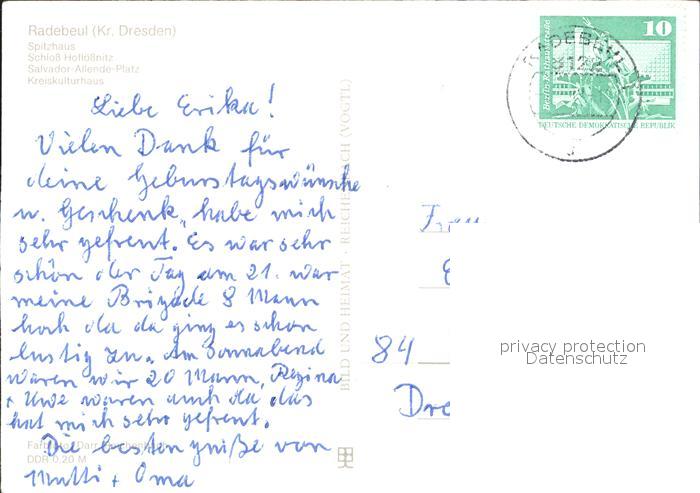 Radebeul (Kr. Dresden)
Spitzhaus
Schloß Hoflößnitz
Salvador-Allende-Platz
Kreiskulturhaus
Liebe Erika!
Vielen Dank für
deine Geburstagswünsche
u. Geschenk, habe mich
sehr gefreut. Es war sehr
schön der Tag am 21. war
meine Brigade 8 Mann
hoch da da ging es schon
lustig zu. Am Sonnabend
waren wir 20 Mann, Regina
+ Uwe waren auch da das
hat mich sehr gefreut.
Die besten grüße von
Mutti + Oma
DDR 0,20 M
BILD UND HEIMAT · REICHENBACH (VOGTL)
10
DEUTSCHE DEMOKRATISCHE REPUBLIK
RADEBEUL
Frau
84
Dre
privacy protection
Datenschutz